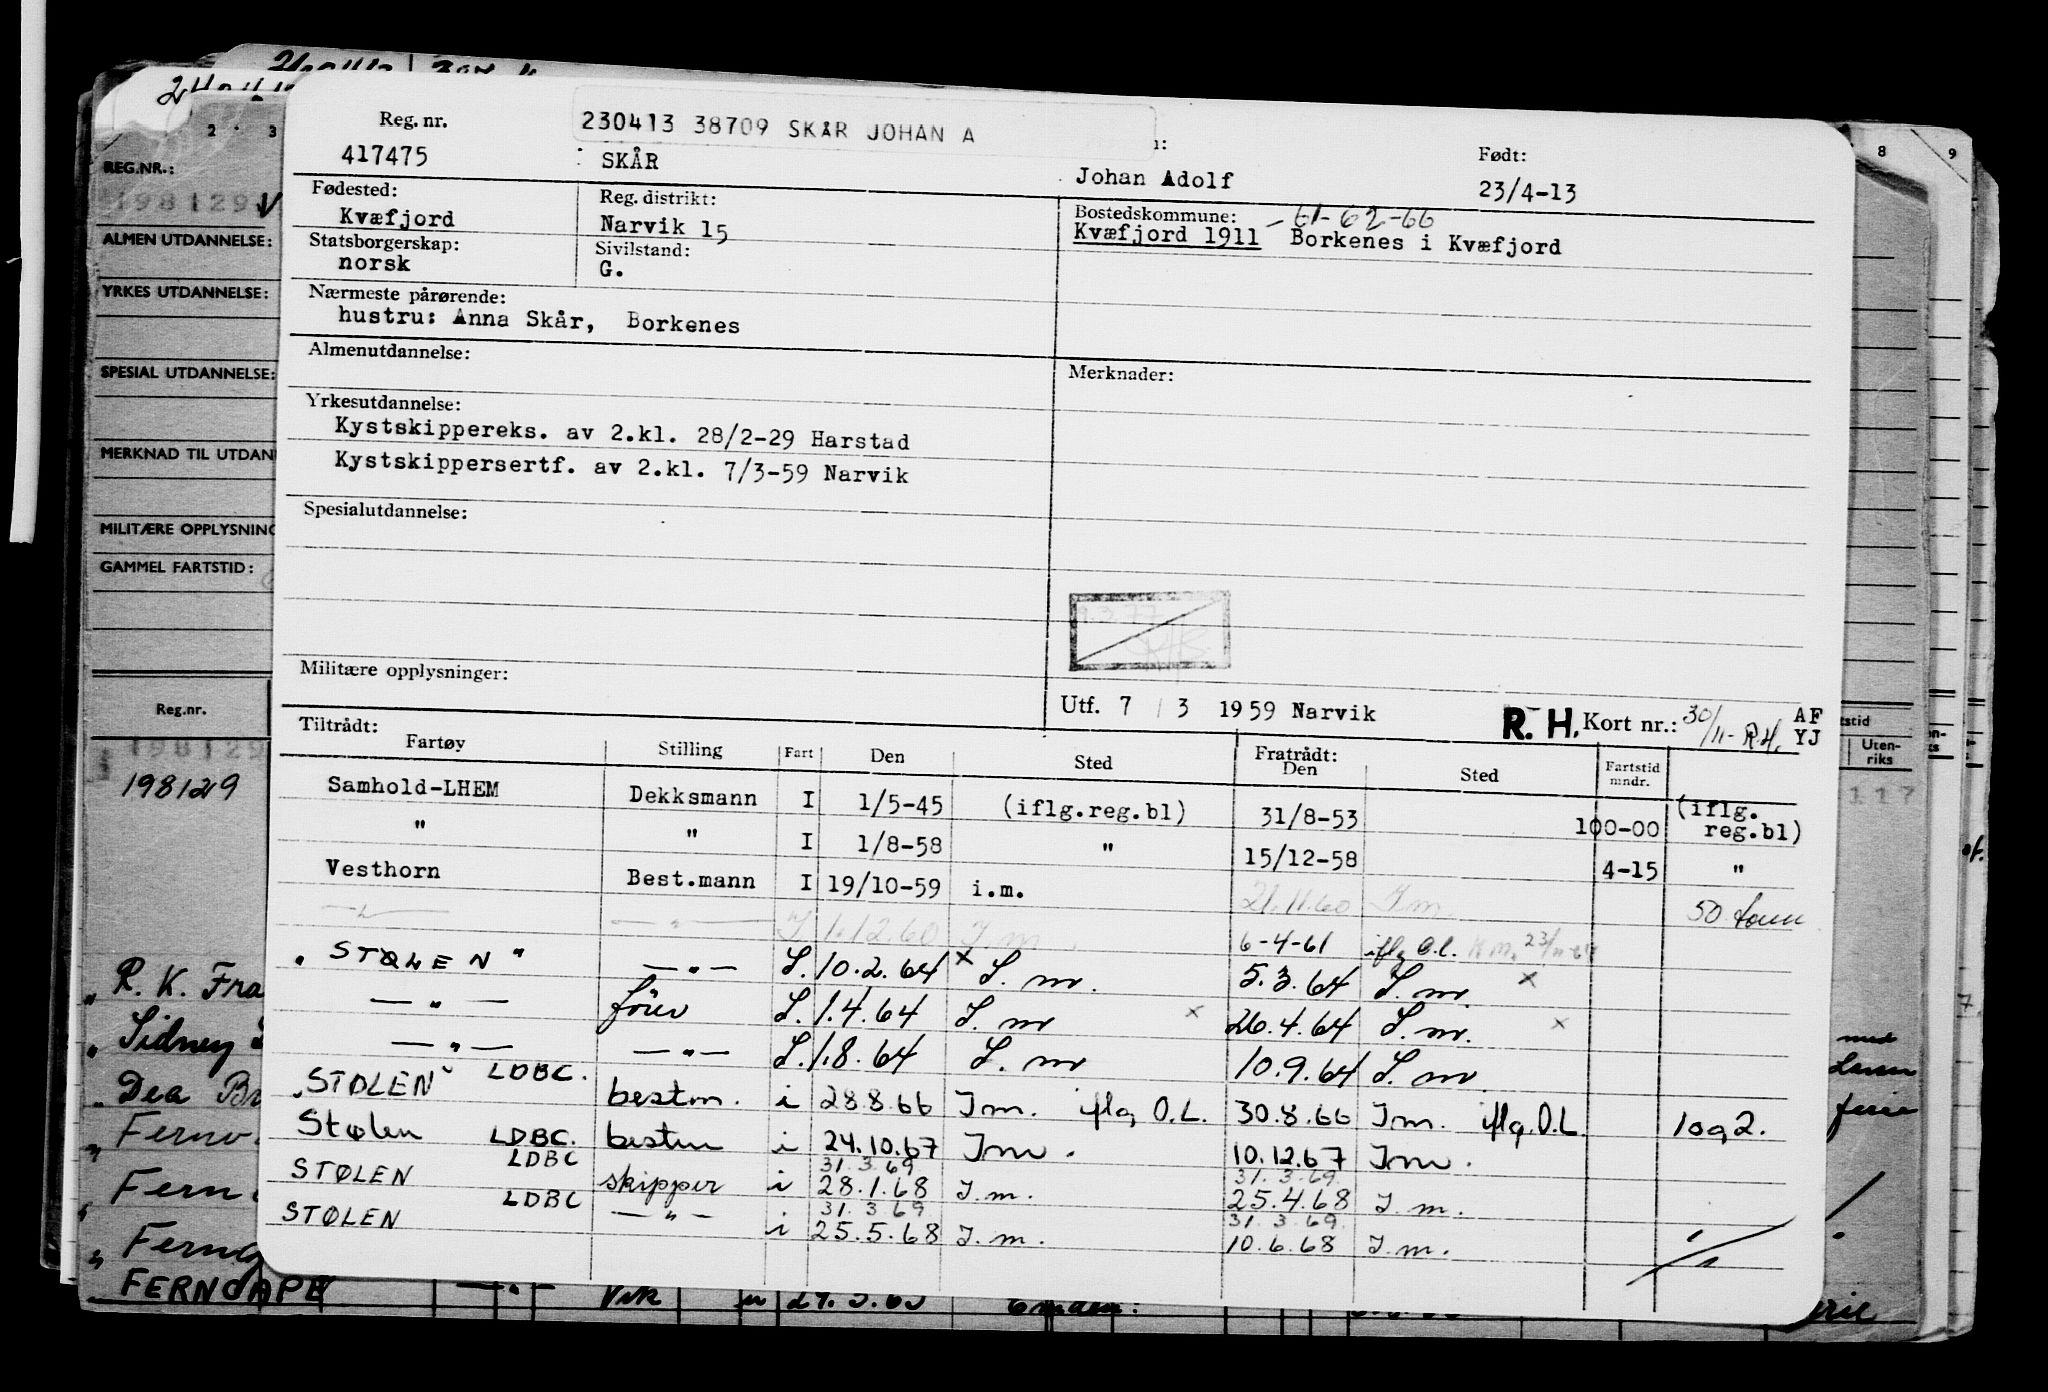 230413 38709 SKÅR JOHAN A
Reg. nr. Født:
417475 SKÅR Johan Adolf 23/4-13
Fødested: Reg. distrikt: Bostedskommune: -61-62-66
Kvæfjord Narvik 15 Kvæfjord 1911 Borkenes i Kvæfjord
Statsborgerskap: Sivilstand:
norsk G.
Nærmeste pårørende:
hustru: Anna Skår, Borkenes
Almenutdannelse: Merknader:
Yrkesutdannelse:
Kystskippereks. av 2.kl. 28/2-29 Harstad
Kystskippersertf. av 2.kl. 7/3-59 Narvik
Spesialutdannelse:
9.3.77
Militære opplysninger:
Utf. 7 / 3 1959 Narvik R. H. Kort nr.: 30/11- R.H. AF YJ
Tiltrådt: Fratrådt:
Fartøy Stilling Fart Den Sted Den Sted Fartstid mndr.
Samhold-LHEM Dekksmann I 1/5-45 (iflg.reg.bl) 31/8-53 100-00 (iflg. reg.bl)
" " I 1/8-58 " 15/12-58 4-15 "
Vesthorn Best.mann I 19/10-59 i.m. 21.11.60 I.m. 50 tonn
—"— —"— I 1.12.60 I.m. 6-4-61 iflg O.L.
"STØLEN" —"— I. 10.2.64 x I. m. 5.3.64 I. m. x
—"— förer I. 1.4.64 I. m x 26.4.64 I. m. x
—"— —"— I. 1.8.64 I. m 10.9.64 I. m.
"STOLEN" LDBC. bestm. i 28.8.66 Im. iflg O.L. 30.8.66 Im. iflg. O.L. 1 og 2.
Stølen LDBC. bestm i 24.10.67 Im. 10.12.67 Im.
31.3.69 31.3.69
STØLEN LDBC skipper i 28.1.68 I.m. 25.4.68 I.m.
31.3.69 31.3.69
STØLEN LDBC —"— i 25.5.68 I.m. 10.6.68 I.m.
2 3
REG.NR.:
198129
ALMEN UTDANNELSE:
YRKES UTDANNELSE:
SPESIAL UTDANNELSE:
MERKNAD TIL UTDAN
MILITÆRE OPPLYSNING
GAMMEL FARTSTID:
Reg.nr.
198129
198129
R. K. Fra
Sidney
Dea Br
Fern
Fern
FERNCAPE —"— Vik 29.5.63 Emden.
8 9
tstid
Uten-riks
117